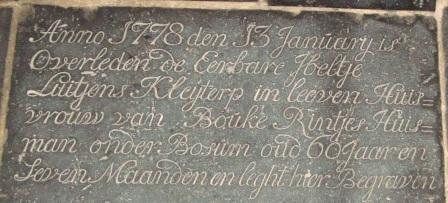 Anno 1778 den 13 January is
Overleden de Eerbare Ybeltje
Luitjens Kleyterp in leeven Huis=
vrouw van Bouke Rintjes Huis=
man onder Bosum oud 60 Jaar en
Seven Maanden en leght hier Begraven